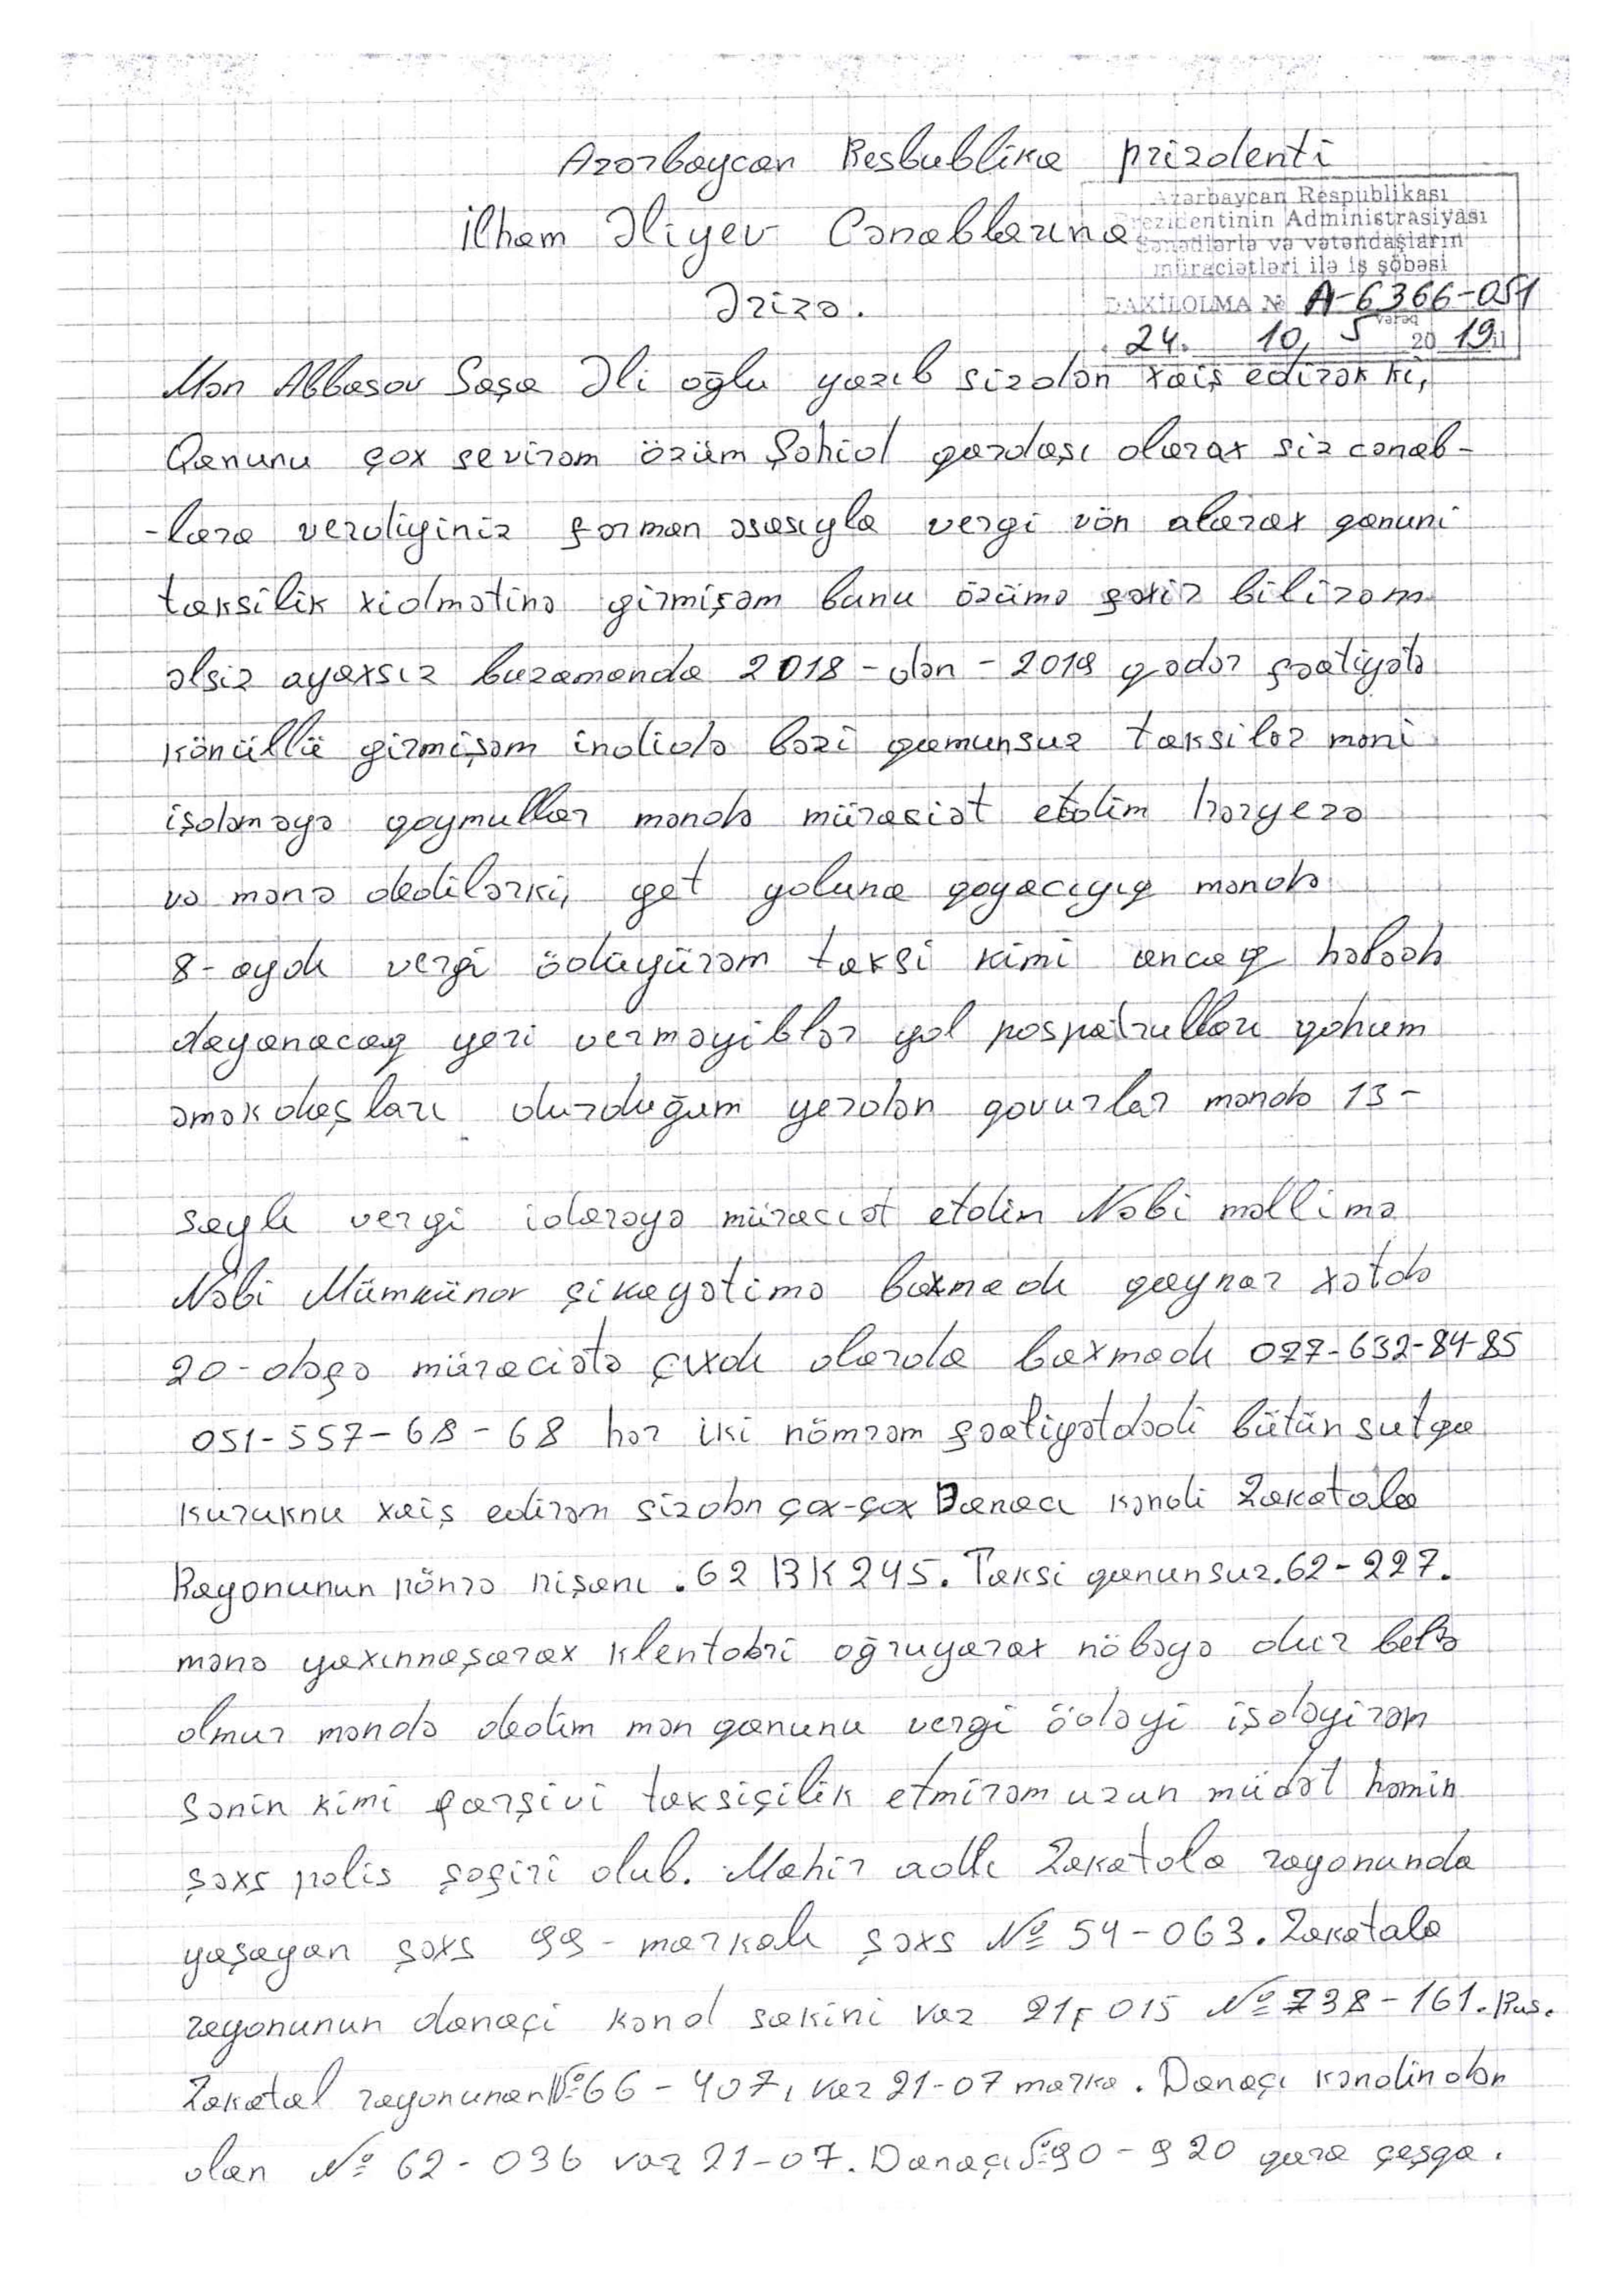 Azərbaycan Resbublika prizdenti
İlham Əliyev Cənablarına
Ərizə.
Azərbaycan Respublikası
Prezidentinin Administrasiyası
Sənədlərlə və vətəndaşların
müraciətləri ilə iş şöbəsi
DAXİLOLMA № A-6366-051
24. 10, 5 vərəq 2019 il
Mən Abbasov Saşa Əli oğlu yazıb sizdən xaiş edirək ki,
Qanunu çox sevirəm özüm Şəhid qardaşı olarax siz cənab-
-lara verdiyiniz fərman əsasıyla vergi vön alarax qanuni
taksilik xidmətinə girmişəm bunu özümə fəxir bilirəm
əlsiz ayaxsız buzamanda 2018-dən-2019 qədər fəaliyətə
könüllü girmişəm indidə bəzi qamunsuz taksilər məni
işdəməyə qoymullar məndə müraciət etdim həryerə
və mənə dedilərki, get yoluna qoyacıyıq məndə
8-aydı vergi ödüyürəm taksi kimi ancaq hələdə
dayanacaq yeri verməyiblər yol pospatrulları qohum
əməkdaşları durduğum yerdən qovurlar məndə 13-
saylı vergi idarəyə müraciət etdin Nəbi məllimə
Nəbi Mümkünov şikayətimə baxmadı qaynar xətdə
20-dəfə müraciətə çıxdı olarda baxmadı 077-632-84-85
051-557-68-68 hər iki nömrəm fəaliyətdədi bütün sutqa
kuruknu xaiş edirəm sizdən çox-çox Danacı kəndi Zakatala
Rayonunun nönrə nişanı. 62 BK 245. Taksi qanunsuz. 62-227.
mənə yaxınnaşarax klentdəri oğruyarax nöbəyə dur belə
olmur məndə dedim mən qanunu vergi ödəyi işdəyirəm
sənin kimi farşivi taksiçilik etmirəm uzun müdət həmin
şəxs polis şofiri olub. Mahir adlı Zakatala rayonunda
yaşayan şəxs 99-markalı şəxs № 54-063. Zakatala
rayonunun danaçi kənd sakini vaz 21,015 № 738-161. Rus.
Zakatal rayonunan № 66-407, vaz 21-07 marka. Danaçı kəndindən
olan № 62-036 vaz 21-07. Danaçı № 90-920 qara çeşqa.